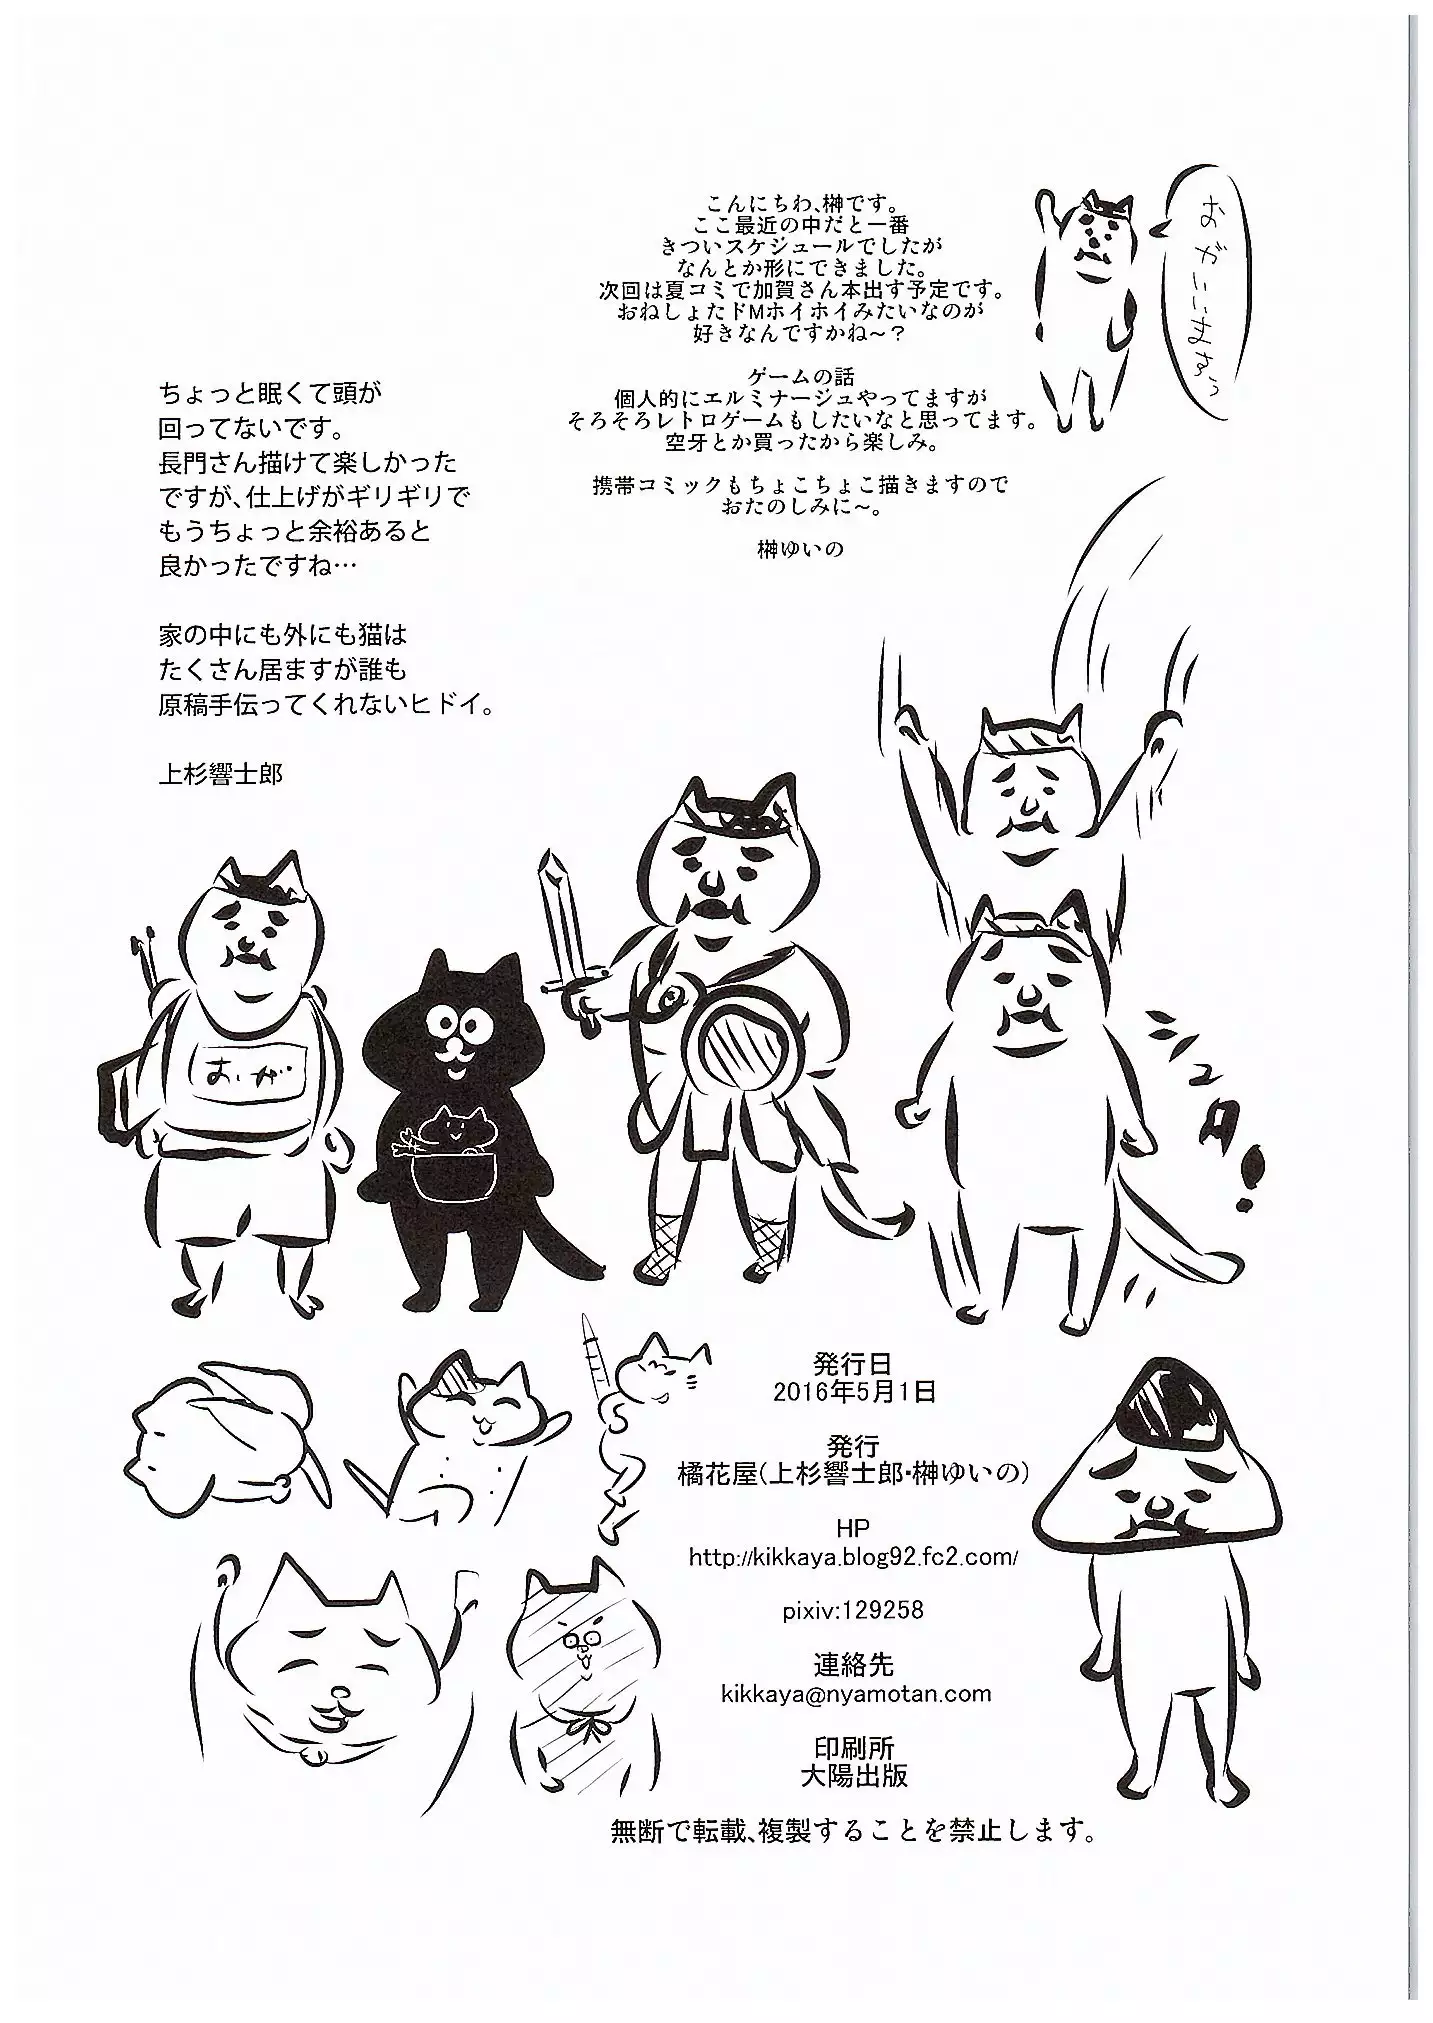 こんにちわ、榊です。
ここ最近の中だと一番
きついスケジュールでしたが
なんとか形にできました。
次回は夏コミで加賀さん本出す予定です。
おねしょたドMホイホイみたいなのが
好きなんですかね～?
ゲームの話
個人的にエルミナージュやってますが
そろそろレトロゲームもしたいなと思ってます。
空牙とか買ったから楽しみ。
携帯コミックもちょこちょこ描きますので
おたのしみに～。
榊ゆいの
おがいいますぅ
ちょっと眠くて頭が
回ってないです。
長門さん描けて楽しかった
ですが、仕上げがギリギリで
もうちょっと余裕あると
良かったですね…
家の中にも外にも猫は
たくさん居ますが誰も
原稿手伝ってくれないヒドイ。
上杉響士郎
おが
シュタ!
発行日
2016年5月1日
発行
橘花屋(上杉響士郎・榊ゆいの)
HP
http://kikkaya.blog92.fc2.com/
pixiv:129258
連絡先
kikkaya@nyamotan.com
印刷所
大陽出版
無断で転載、複製することを禁止します。